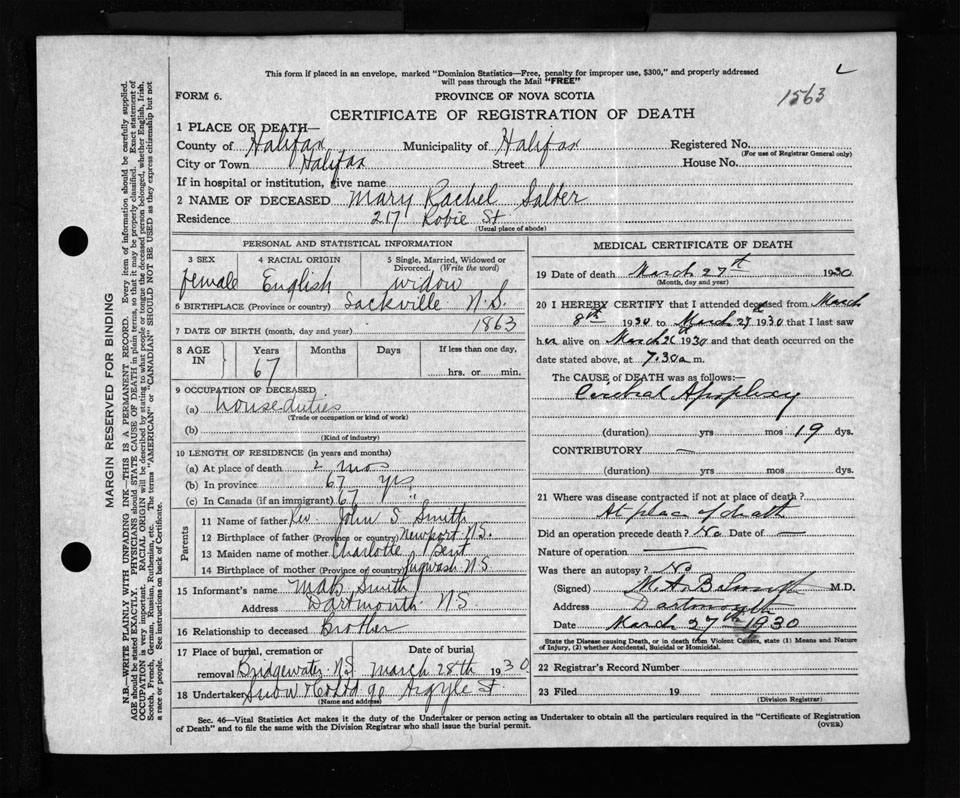 This form if placed in an envelope, marked "Dominion Statistics—Free, penalty for improper use, $300," and properly addressed
will pass through the Mail "FREE"
L
1563
FORM 6.
PROVINCE OF NOVA SCOTIA
CERTIFICATE OF REGISTRATION OF DEATH
1 PLACE OF DEATH—
County of Halifax Municipality of Halifax Registered No.
(For use of Registrar General only)
City or Town Halifax Street House No.
If in hospital or institution, give name
2 NAME OF DECEASED Mary Rachel Salter
Residence 217 Robie St
(Usual place of abode)
PERSONAL AND STATISTICAL INFORMATION
3 SEX 4 RACIAL ORIGIN 5 Single, Married, Widowed or
Divorced. (Write the word)
female English widow
6 BIRTHPLACE (Province or country) Sackville N.S.
7 DATE OF BIRTH (month, day and year) 1863
8 AGE IN Years Months Days If less than one day,
67 hrs. or min.
9 OCCUPATION OF DECEASED
(a) house duties
(Trade or occupation or kind of work)
(b)
(Kind of industry)
10 LENGTH OF RESIDENCE (in years and months)
(a) At place of death 2 mos
(b) In province 67 yrs
(c) In Canada (if an immigrant) 67 "
Parents
11 Name of father Rev. John S Smith
12 Birthplace of father (Province or country) Newport N.S.
13 Maiden name of mother Charlotte Bent
14 Birthplace of mother (Province or country) Pugwash N.S.
15 Informant's name MAB Smith
Address Dartmouth NS
16 Relationship to deceased Brother
17 Place of burial, cremation or Date of burial
removal Bridgewater N.S. March 28th 1930
18 Undertaker Snow & Co Ltd 90 Argyle St.
(Name and address)
MEDICAL CERTIFICATE OF DEATH
19 Date of death March 27th 1930
(Month, day and year)
20 I HEREBY CERTIFY that I attended deceased from March
8th 1930 to March 27th 1930 that I last saw
her alive on March 26 1930 and that death occurred on the
date stated above, at 7.30 a m.
The CAUSE of DEATH was as follows:—
Cerebral Apoplexy
(duration) yrs mos 19 dys.
CONTRIBUTORY —
(duration) yrs mos dys.
21 Where was disease contracted if not at place of death?
At place of death
Did an operation precede death? No Date of —
Nature of operation —
Was there an autopsy? No
(Signed) M.A.B Smith M.D.
Address Dartmouth
Date March 27th 1930
State the Disease causing Death, or in death from Violent Causes, state (1) Means and Nature
of Injury, (2) whether Accidental, Suicidal or Homicidal.
22 Registrar's Record Number
23 Filed 19
(Division Registrar)
Sec. 46—Vital Statistics Act makes it the duty of the Undertaker or person acting as Undertaker to obtain all the particulars required in the "Certificate of Registration
of Death" and to file the same with the Division Registrar who shall issue the burial permit.
(OVER)
MARGIN RESERVED FOR BINDING
N.B.—WRITE PLAINLY WITH UNFADING INK—THIS IS A PERMANENT RECORD. Every item of information should be carefully supplied.
AGE should be stated EXACTLY. PHYSICIANS should STATE CAUSE OF DEATH in plain terms, so that it may be properly classified. Exact statement of
OCCUPATION is very important. RACIAL ORIGIN will be described by stating to what people or tongue the deceased person belonged, whether English, Irish,
Scotch, French, German, Russian, Ruthenian, etc. The terms "AMERICAN" or "CANADIAN" SHOULD NOT BE USED as they express citizenship but not
a race or people. See instructions on back of Certificate.